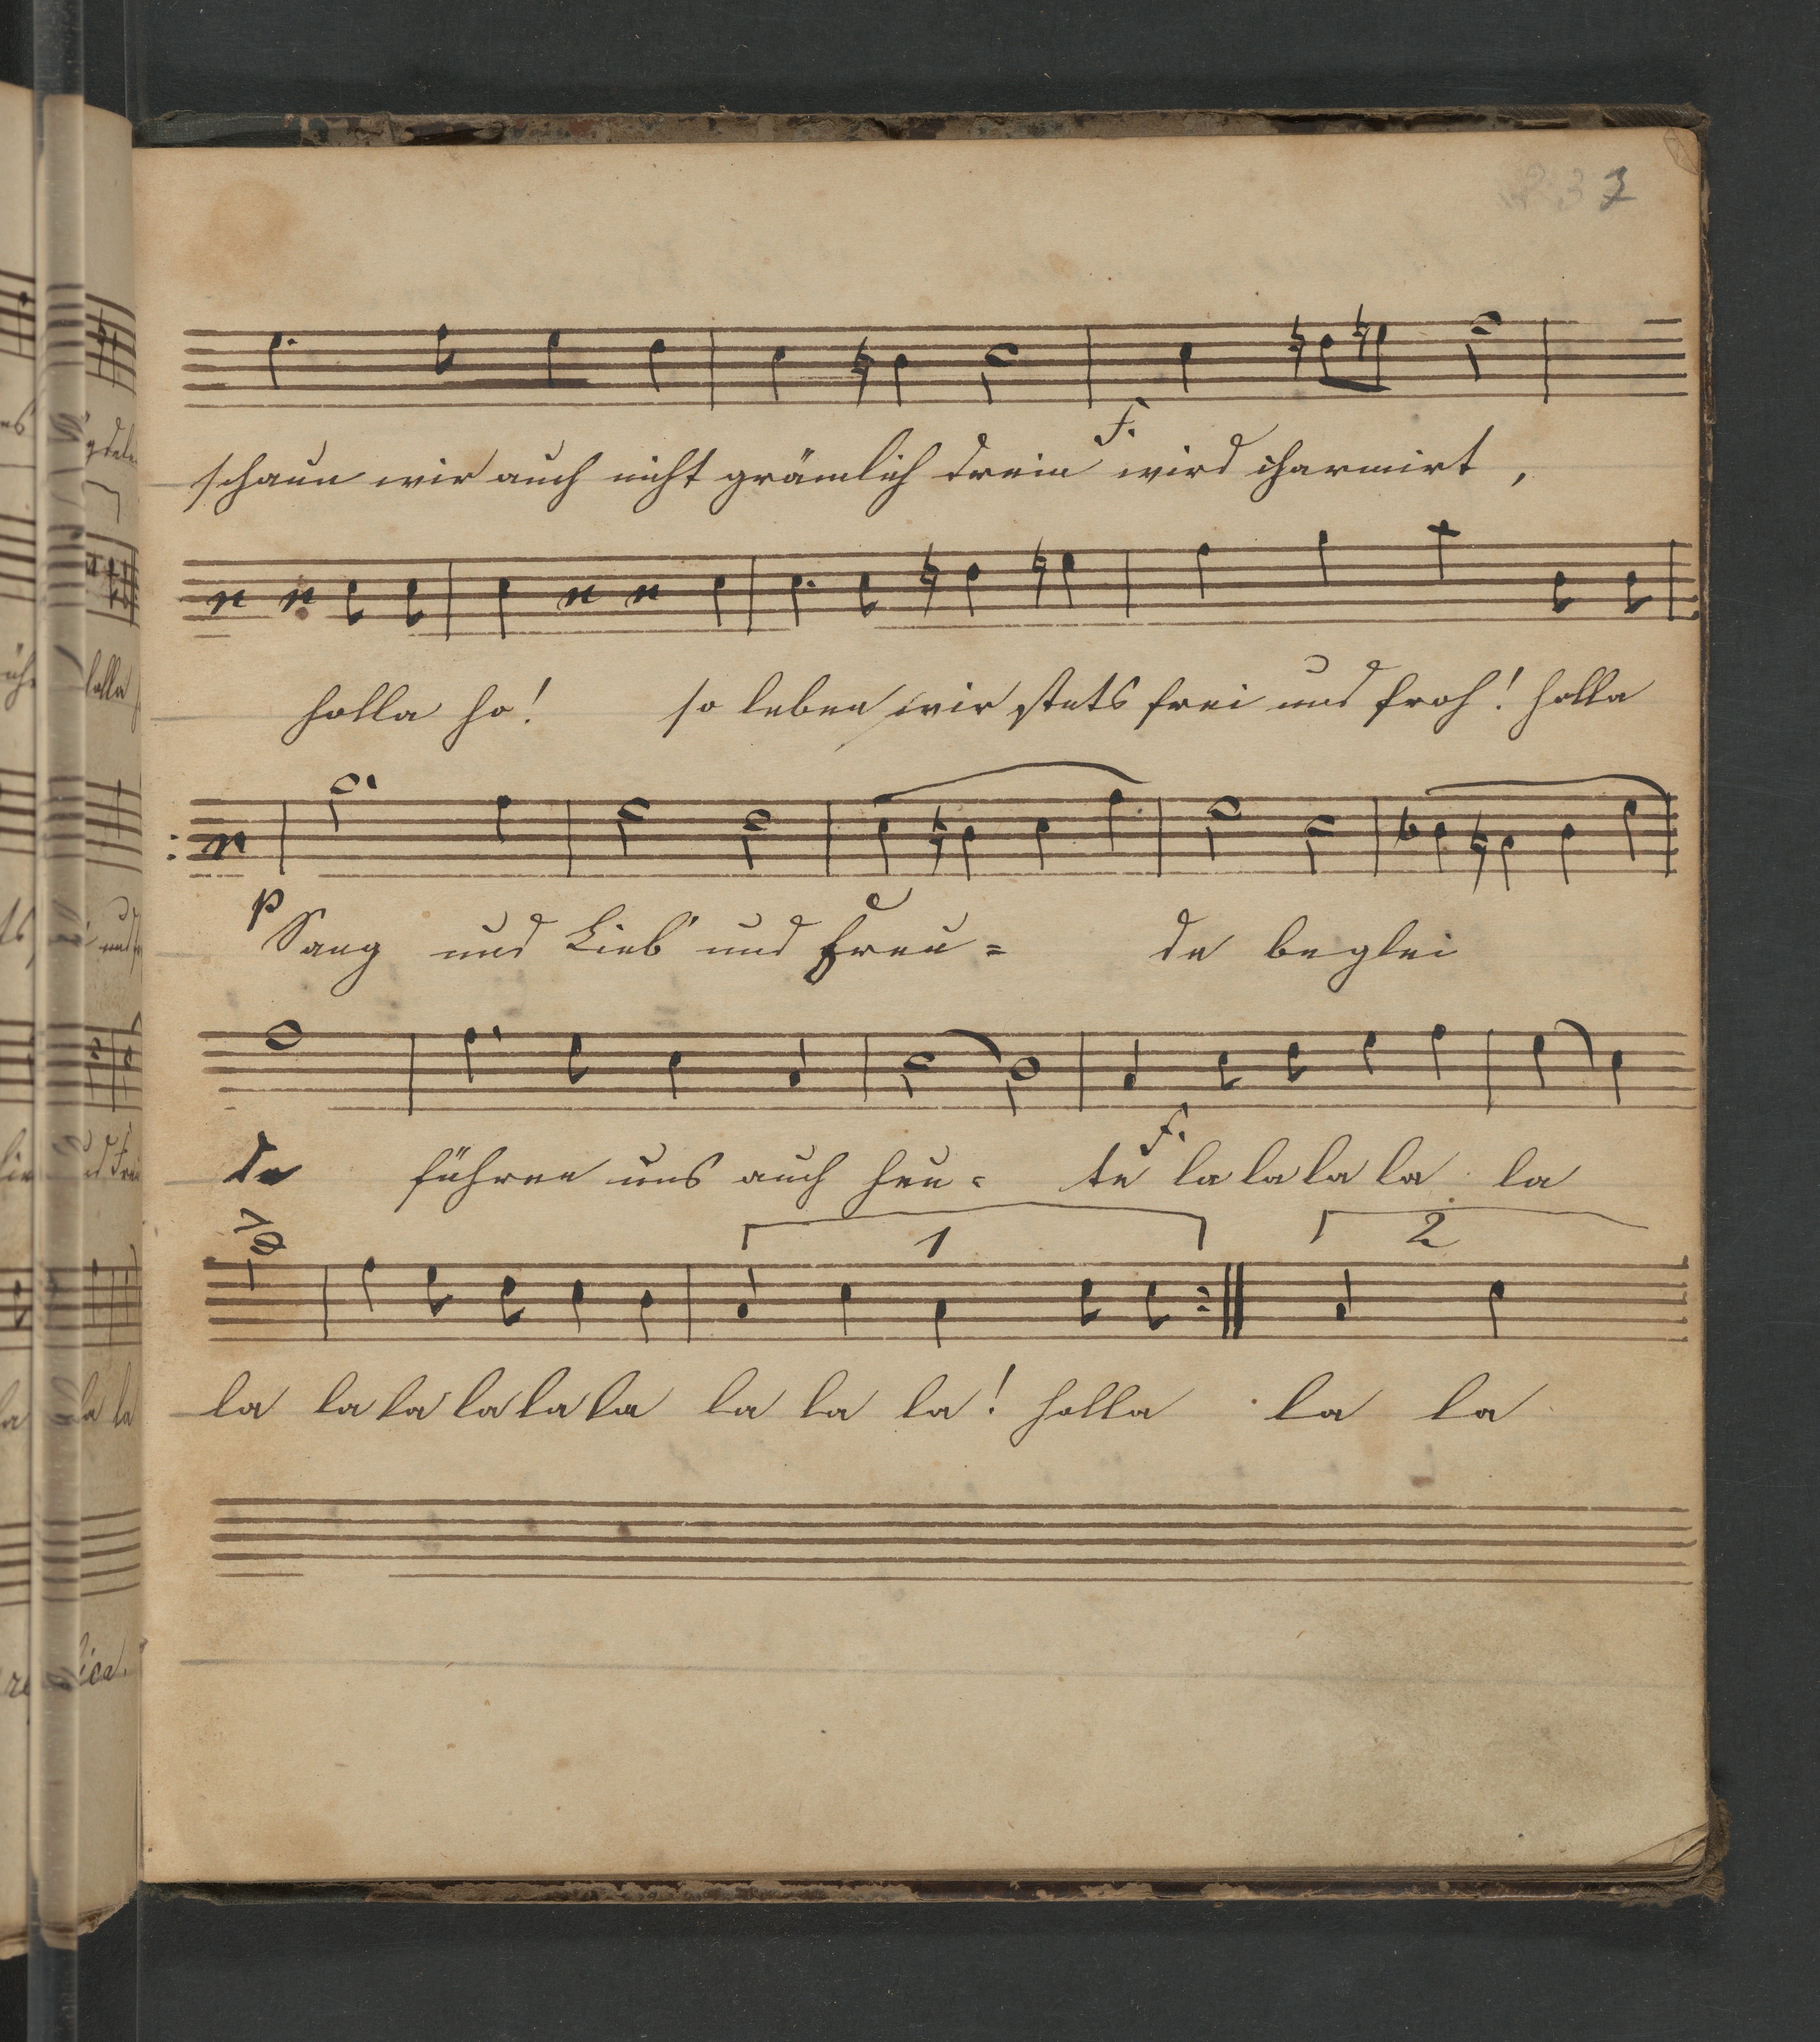 37
f.
schaun wir auch nicht grämlich drein wird charmirt,
holla ho! so leben wir stets frei und froh! holla
p
Sang und Lieb' und Freu= de beglei
f.
te führen uns auch heu= te la la la la la
1 2
la la la la la la la la la! holla la la